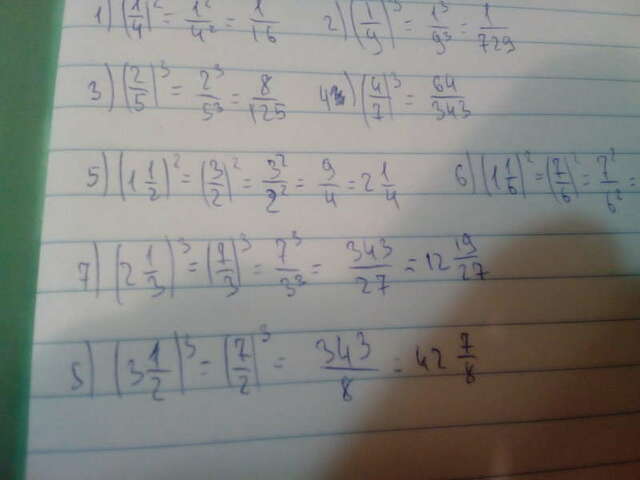 1) (1/4)² = 1²/4² = 1/16 2) (1/9)³ = 1³/9³ = 1/729
3) (2/5)³ = 2³/5³ = 8/125 4) (4/7)³ = 64/343
5) (1 1/2)² = (3/2)² = 3²/2² = 9/4 = 2 1/4 6) (1 1/6)² = (7/6)² = 7²/6² =
7) (2 1/3)³ = (7/3)³ = 7³/3³ = 343/27 = 12 19/27
5) (3 1/2)³ = (7/2)³ = 343/8 = 42 7/8